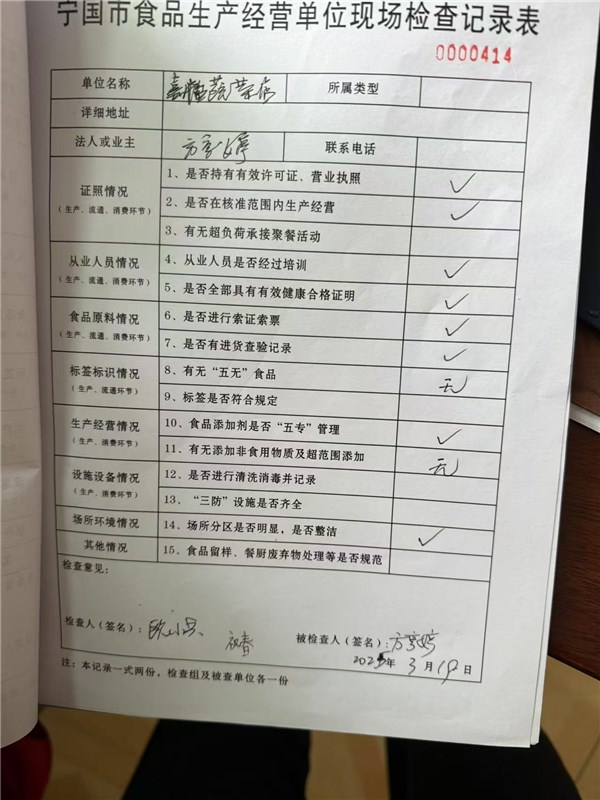 宁国市食品生产经营单位现场检查记录表
0000414
单位名称 蔬菜店 所属类型
详细地址
法人或业主 方 婷 联系电话
证照情况
(生产、流通、消费环节)
1、是否持有有效许可证、营业执照 ✓
2、是否在核准范围内生产经营 ✓
3、有无超负荷承接聚餐活动
从业人员情况
(生产、流通、消费环节)
4、从业人员是否经过培训 ✓
5、是否全部具有有效健康合格证明 ✓
食品原料情况
(生产、流通、消费环节)
6、是否进行索证索票 ✓
7、是否有进货查验记录 ✓
标签标识情况
(生产、流通环节)
8、有无“五无”食品 无
9、标签是否符合规定
生产经营情况
(生产、消费环节)
10、食品添加剂是否“五专”管理 ✓
11、有无添加非食用物质及超范围添加 无
设施设备情况
(生产、消费环节)
12、是否进行清洗消毒并记录
13、“三防”设施是否齐全
场所环境情况
14、场所分区是否明显，是否整洁 ✓
其他情况
15、食品留样、餐厨废弃物处理等是否规范
检查意见：
检查人(签名)： 被检查人(签名)：方 婷
2025年 3月19日
注：本记录一式两份，检查组及被查单位各一份